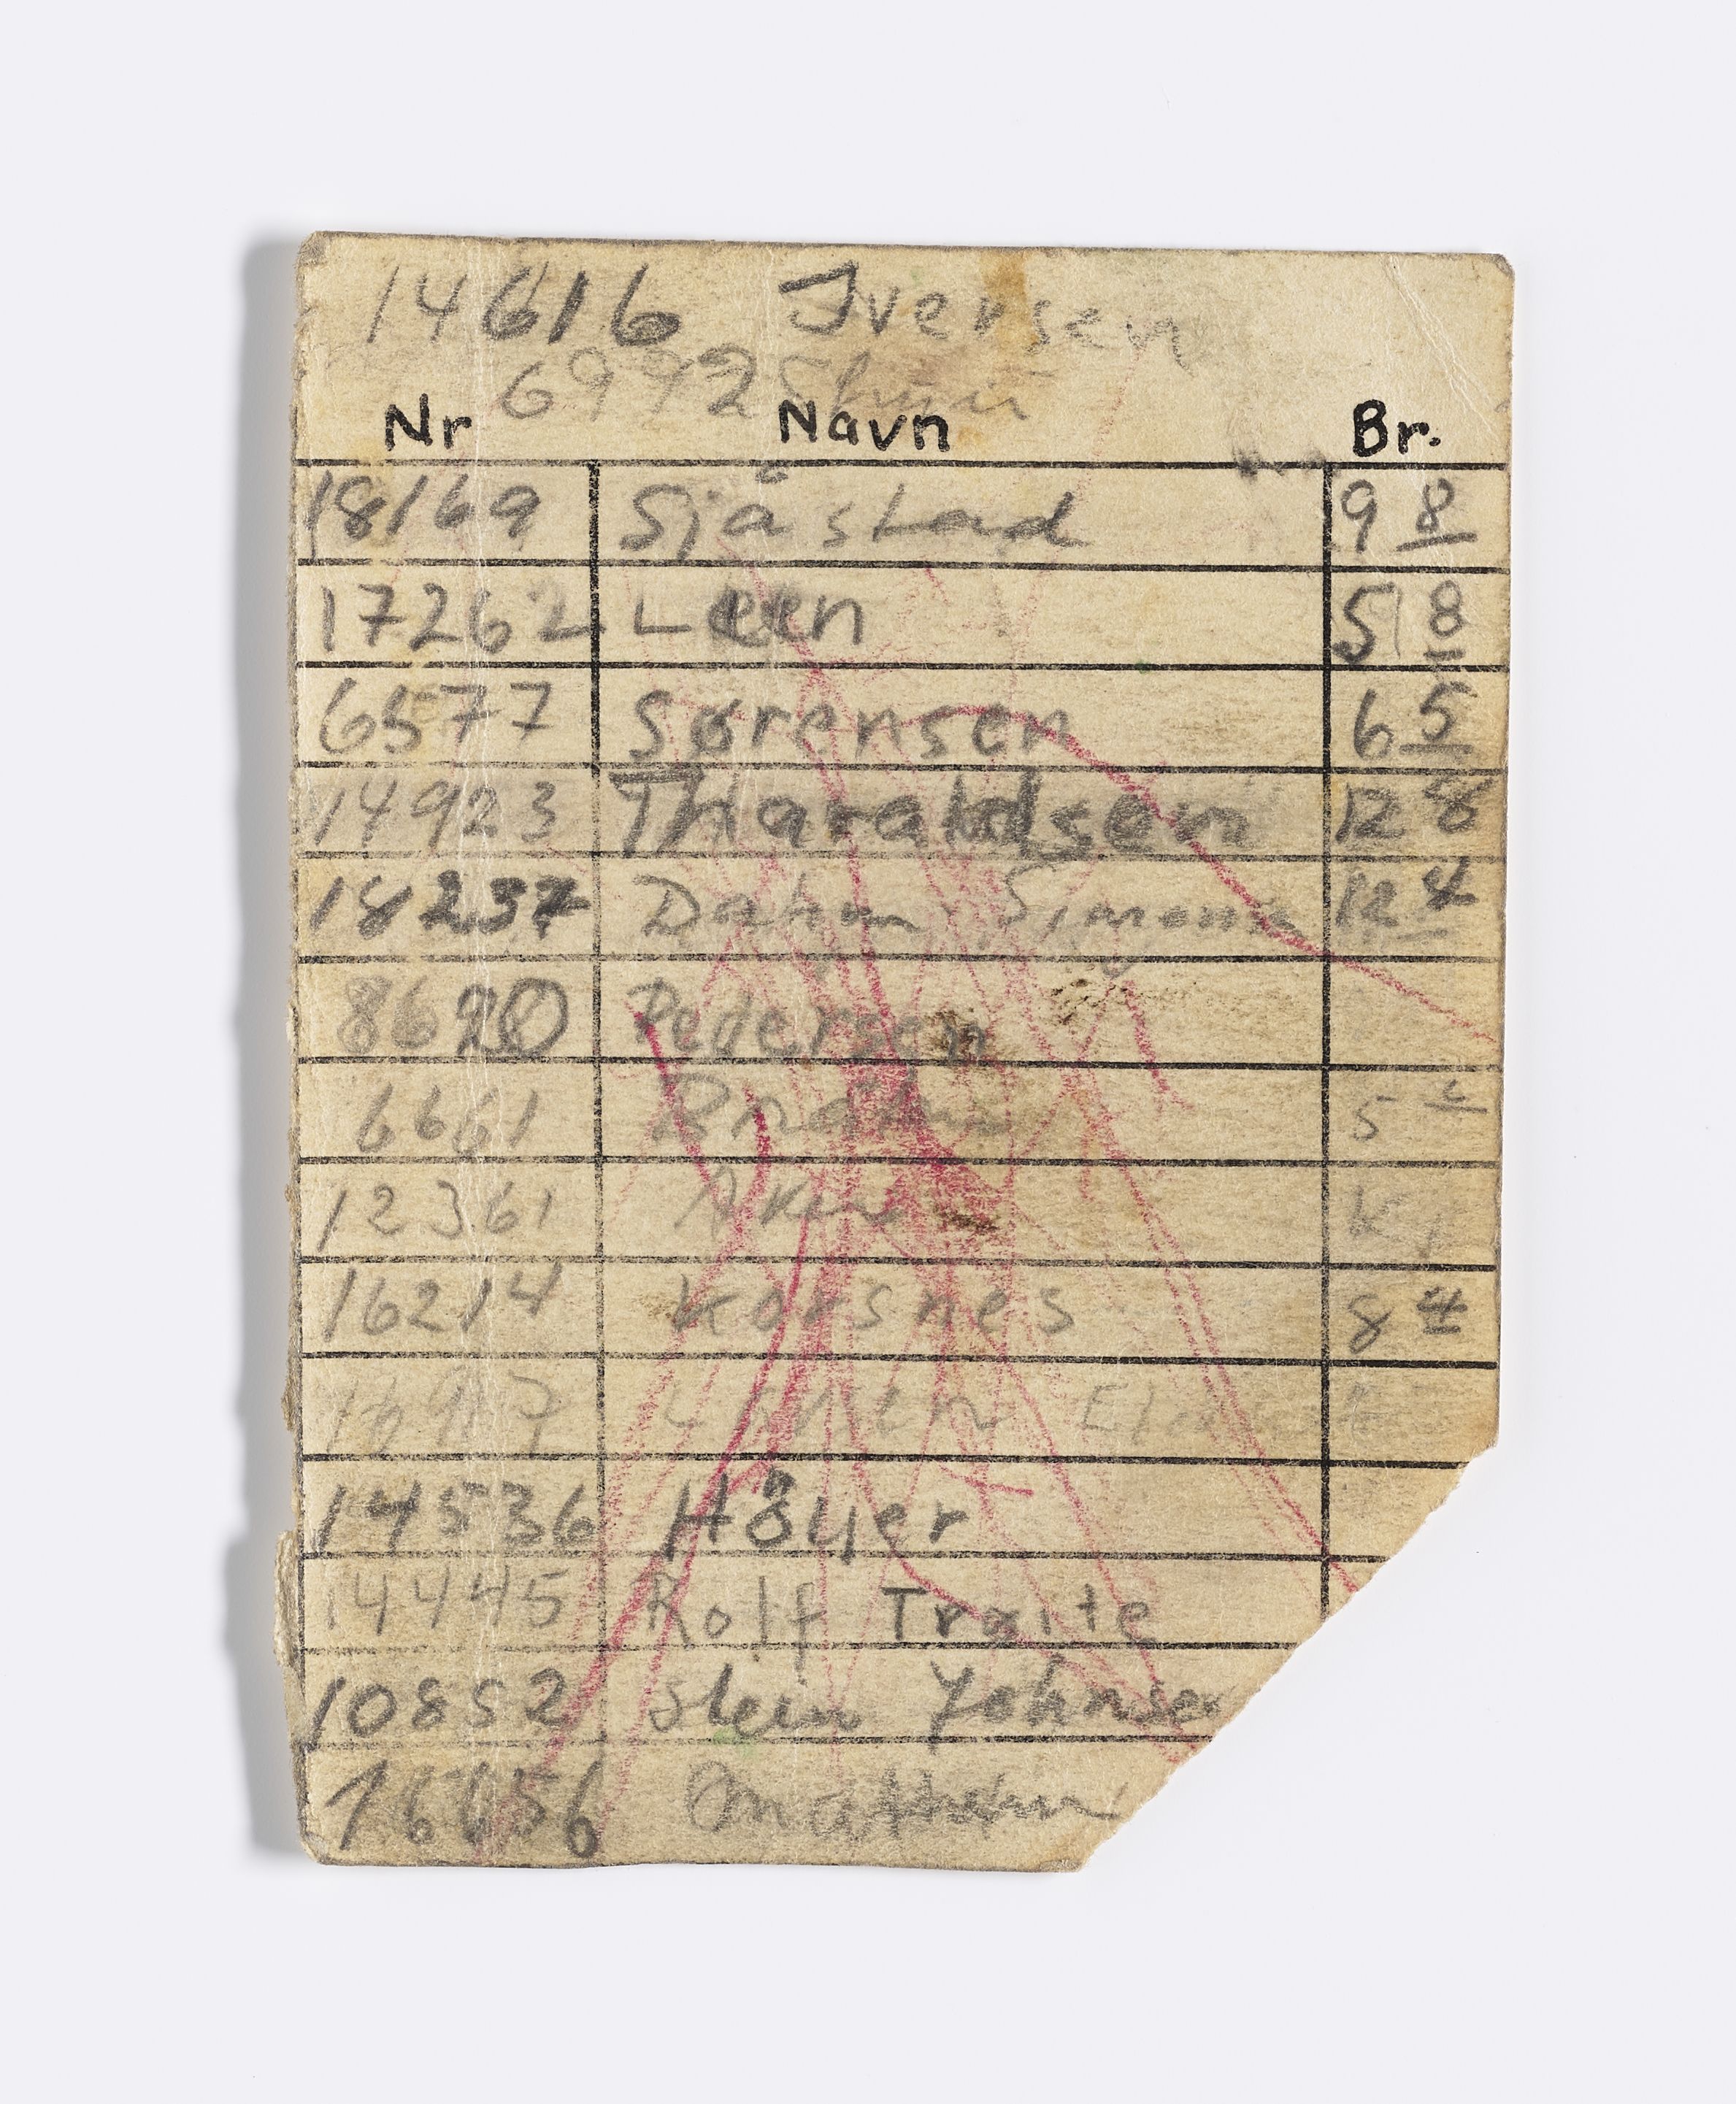 14616 Iversen
6992
Nr Navn Br.
18169 Sjåstad 9 8
17262 Leen 5 8
6577 Sørensen 6 5
14923 Tharaldsen 12 8
18237 Dahm Simons 12 4
8620 Pedersen
6661 5
12361 Aker K
16214 Korsnes 8 4
Larsen
14536 Höyer
14445 Rolf Traite
10852 Stein Johnsen
16656